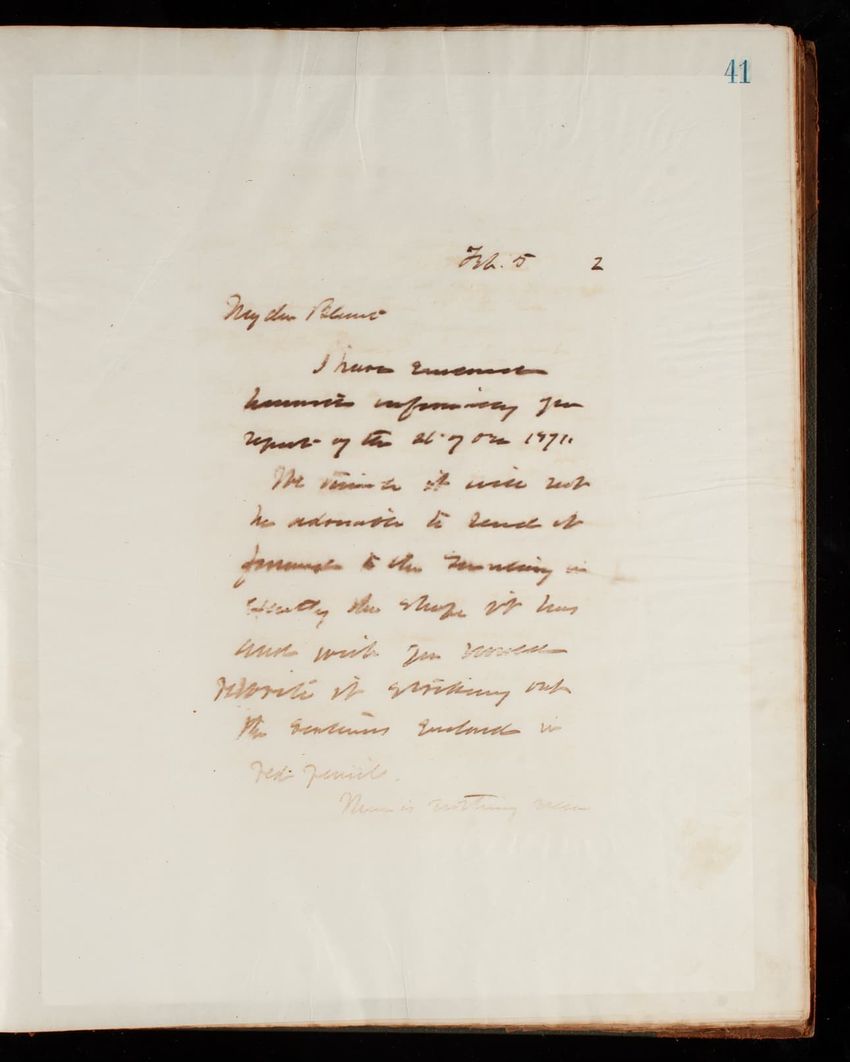 41
Feb. 5 2
My dear
I have
your
report of the 26 of Dec 1871.
We think it will not
be advisable to send it
forward to the in
exactly the shape it has
and wish you would
rewrite it striking out
the sentences enclosed in
red pencil.
There is nothing new